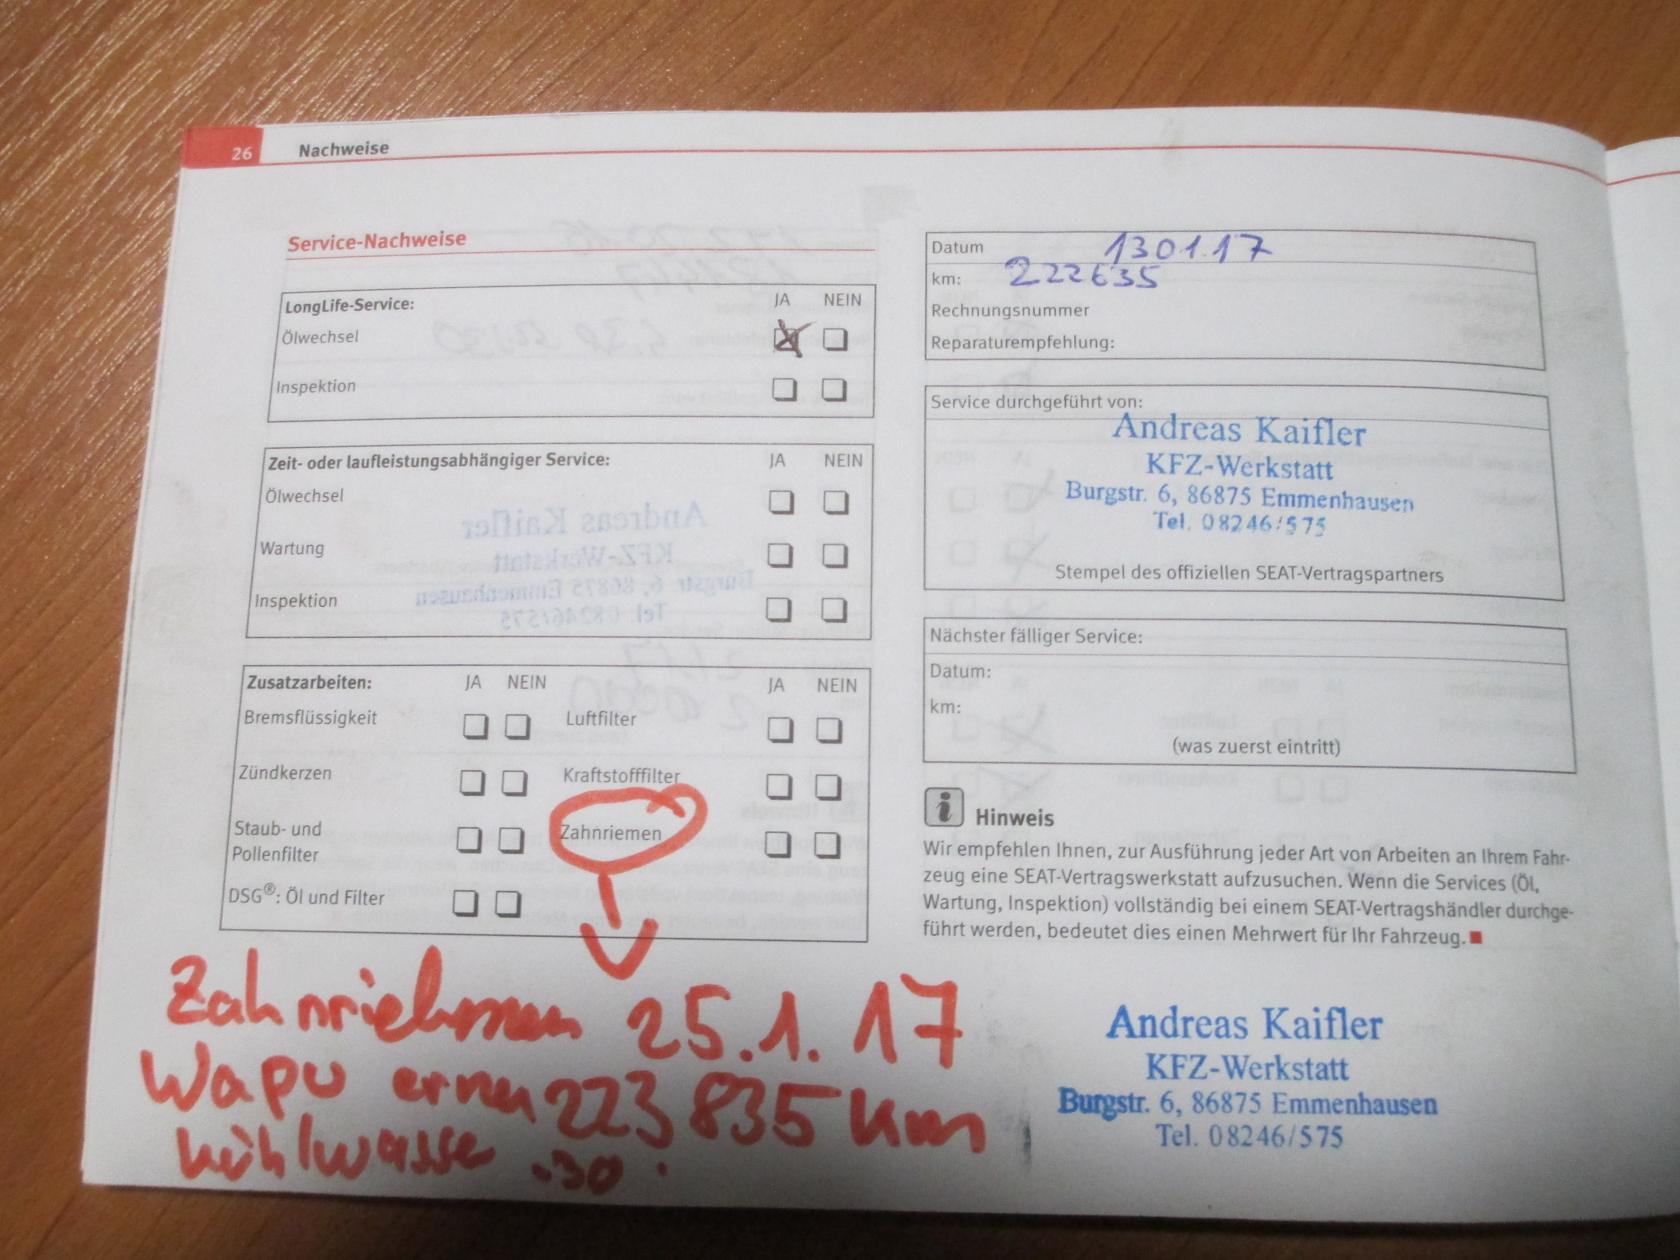 26 Nachweise
Service-Nachweise
LongLife-Service: JA NEIN
Ölwechsel
Inspektion
Zeit- oder laufleistungsabhängiger Service: JA NEIN
Ölwechsel
Wartung
Inspektion
Zusatzarbeiten: JA NEIN JA NEIN
Bremsflüssigkeit Luftfilter
Zündkerzen Kraftstofffilter
Staub- und
Pollenfilter Zahnriemen
DSG®: Öl und Filter
Zahnriehmen 25.1.17
Wapu erneu 223835 Km
kühlwasse -30
Datum 1301.17
km: 222635
Rechnungsnummer
Reparaturempfehlung:
Service durchgeführt von:
Andreas Kaifler
KFZ-Werkstatt
Burgstr. 6, 86875 Emmenhausen
Tel. 08246/575
Stempel des offiziellen SEAT-Vertragspartners
Nächster fälliger Service:
Datum:
km:
(was zuerst eintritt)
i Hinweis
Wir empfehlen Ihnen, zur Ausführung jeder Art von Arbeiten an Ihrem Fahr-
zeug eine SEAT-Vertragswerkstatt aufzusuchen. Wenn die Services (Öl,
Wartung, Inspektion) vollständig bei einem SEAT-Vertragshändler durchge-
führt werden, bedeutet dies einen Mehrwert für Ihr Fahrzeug.
Andreas Kaifler
KFZ-Werkstatt
Burgstr. 6, 86875 Emmenhausen
Tel. 08246/575